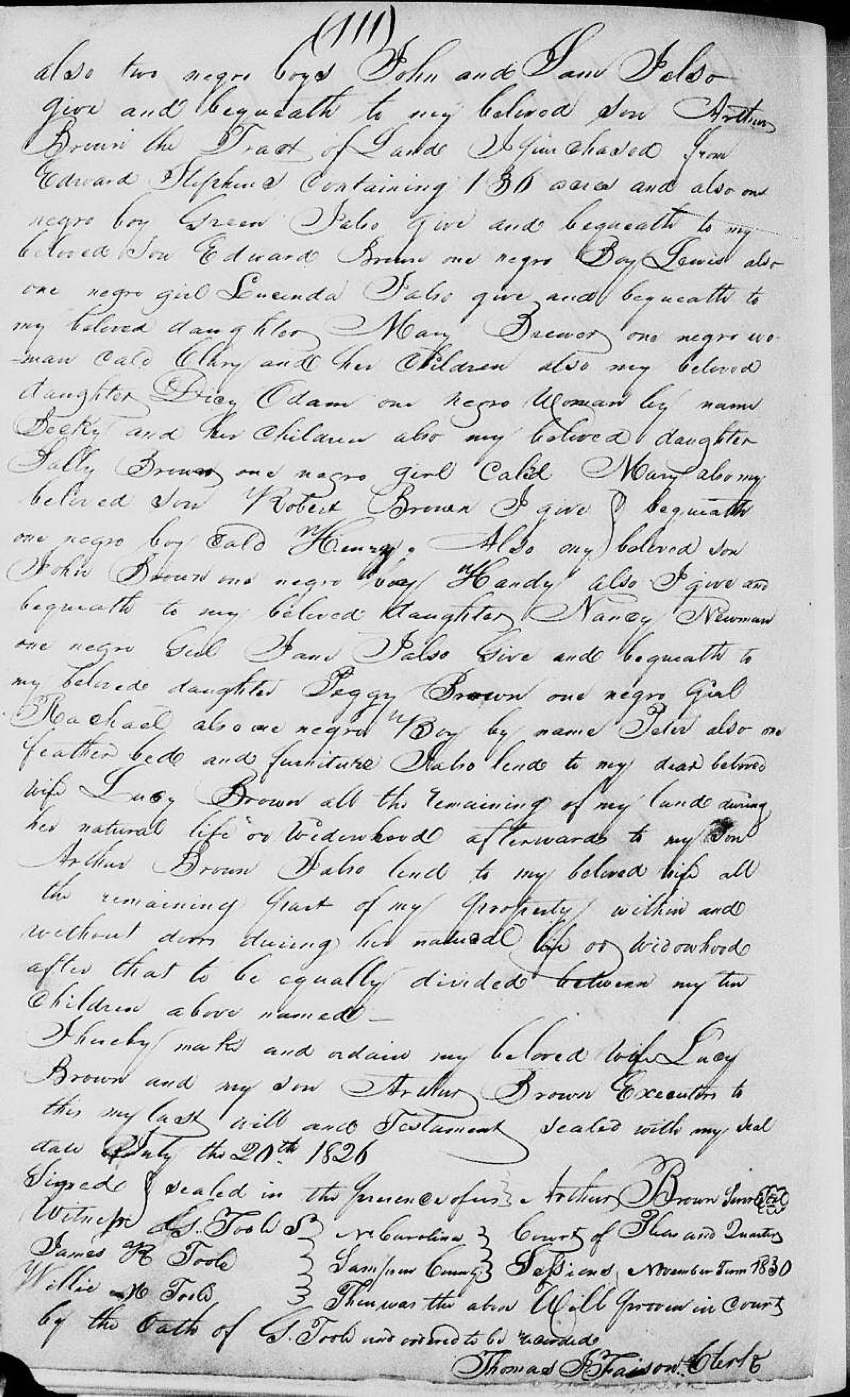 (111)
also two negro boys John and Sam I also
give and bequeath to my beloved son Arthur
Brown the Tract of Land I purchased from
Edward Stephens Containing 136 acres and also one
negro boy Green I also give and bequeath to my
beloved Son Edward Brown one negro Boy Lewis also
one negro girl Lucinda I also give and bequeath to
my beloved daughter Mary Brewer one negro wo-
-man Cald Clary and her Children also my beloved
daughter Dicy Odam one negro Woman by name
Becky and her Children also my beloved daughter
Sally Brown one negro girl Cal'd Mary also my
beloved son Robert Brown I give } bequeath
one negro boy Cald Henry. Also my beloved son
John Brown one negro boy Handy also I give and
bequeath to my beloved daughter Nancy Newman
one negro Girl Jane I also Give and bequeath to
my beloved daughter Peggy Brown one negro Girl
Rachael also one negro Boy by name Peter also one
feather bed and furniture I also lend to my dear beloved
wife Lucy Brown all the remaining of my land during
her natural life or Widowhood afterwards to my Son
Arthur Brown I also lend to my beloved wife all
the remaining part of my property within and
without doors during her natural life or Widowhood
after that to be equally divided between my ten
Children above named —
I hereby make and ordain my beloved Wife Lucy
Brown and my son Arthur Brown Executors to
this my last will and Testament sealed with my seal
date July the 20th 1826
Signed } sealed in the presence of us } Arthur Brown Senr Seal
Witness G. Toole } No Carolina } Court of Pleas and Quarter
James Toole } Sampson County } Sessions November Term 1830
Willie Toole } Then was the above Will proven in Court
by the Oath of G. Toole and ordered to be recorded
Thomas Faison. Clerk